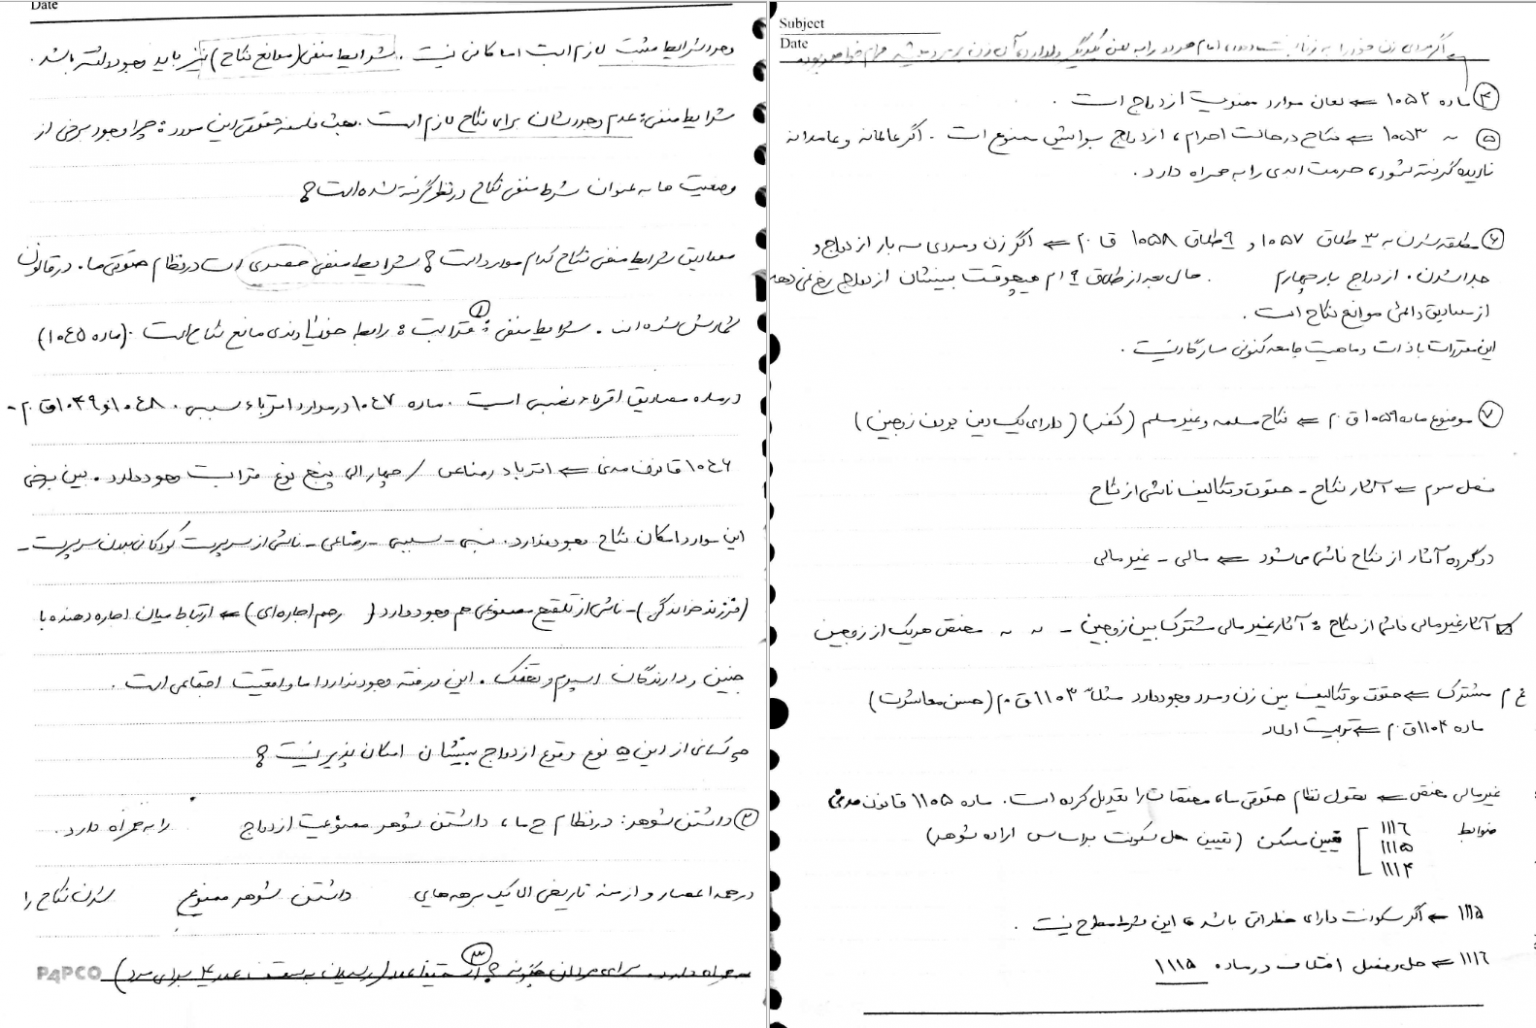 Date
وجود شرایط مثبت لازم است اما کافی نیست. شرایط منفی (موانع نکاح) نیز باید وجود نداشته باشد.
شرایط منفی: عدم وجودشان برای نکاح لازم است. بحث فلسفه حقوقی این مورد: چرا وجود برخی از
وضعیت ها به عنوان شرط منفی نکاح در نظر گرفته شده است؟
مصادیق شرایط منفی نکاح کدام موارد است؟ شرایط منفی حصری است در نظام حقوقی ما. در قانون
شمارش شده اند. شرایط منفی: ① قرابت: رابطه خویشاوندی مانع نکاح است. (ماده ۱۰۴۵)
در ماده مصادیق اقرباء نسبی است. ماده ۱۰۴۷ در موارد اقرباء سببی. ۱۰۴۸ و ۱۰۴۹ ق.م -
۱۰۴۶ قانون مدنی ⇐ اقرباء رضاعی / چهار الی پنج نوع قرابت وجود دارد. بین برخی
این موارد امکان نکاح وجود ندارد. نسبی - سببی - رضاعی - ناشی از سرپرست کودکان بدون سرپرست -
(فرزندخواندگی) - ناشی از تلقیح مصنوعی هم وجود دارد (رحم اجاره ای) ⇐ ارتباط میان اجاره دهنده با
جنین و دارندگان اسپرم و تخمک. این در فقه وجود ندارد اما واقعیت اجتماعی است.
چه کسانی از این ۵ نوع وقوع ازدواج بینشان امکان پذیر نیست؟
② داشتن شوهر: در نظام ح ما، داشتن شوهر ممنوعیت ازدواج را به همراه دارد.
در همه اعصار و ازمنه تاریخی الا یک برهه هایی داشتن شوهر ممنوع شدن نکاح را
به همراه دارد. برای مردان چگونه؟ ③ استیفا عدد (رسیدن به سقف عدد ۴ برای مرد)
PAPCO
Subject
Date
اگر مردی زن خود را به زنا نسبت دهد، امام هردو را به لعن یکدیگر وادارد، آن زن بر مرد همیشه حرام خواهد بود
④ ماده ۱۰۵۲ ⇐ لعان موارد ممنوعیت ازدواج است.
⑤ 〃 ۱۰۵۳ ⇐ نکاح در حالت احرام، ازدواج برایش ممنوع است. اگر عالمانه و عامدانه
نادیده گرفته شود، حرمت ابدی را به همراه دارد.
⑥ مطلقه شدن به ۳ طلاق ۱۰۵۷ و ۹ طلاق ۱۰۵۸ ق.م ⇐ اگر زن و مردی سه بار ازدواج و
جدا شدن. ازدواج بار چهارم . حال بعد از طلاق ۹ ام هیچوقت بینشان ازدواج رخ نمی دهد
از مصادیق دائمی موانع نکاح است.
این مقررات با ذات و ماهیت جامعه کنونی سازگار نیست.
⑦ موضوع ماده ۱۰۵۹ ق.م ⇐ نکاح مسلمه و غیر مسلم (کفر) (دارای یک دین بودن زوجین)
فصل سوم ⇐ آثار نکاح - حقوق و تکالیف ناشی از نکاح
دو گروه آثار از نکاح ناشی می شود ⇐ مالی - غیر مالی
آثار غیر مالی ناشی از نکاح: آثار غیر مالی مشترک بین زوجین - 〃 〃 مختص هریک از زوجین
غ م مشترک ⇐ حقوق و تکالیف بین زن و مرد وجود دارد مثلاً ۱۱۰۳ ق.م (حسن معاشرت)
ماده ۱۱۰۴ ق.م ⇐ تربیت اولاد
غیر مالی مختص ⇐ تحول نظام حقوقی ما، مختصات را تعدیل کرده است. ماده ۱۱۰۵ قانون مدنی
ضوابط ۱۱۱۶ ۱۱۱۵ ۱۱۱۴ تعیین مسکن (تعیین محل سکونت براساس اراده شوهر)
۱۱۱۵ ⇐ اگر سکونت دارای خطراتی باشد، این شرط مطرح نیست.
۱۱۱۶ ⇐ حل و فصل اختلاف در ماده ۱۱۱۵